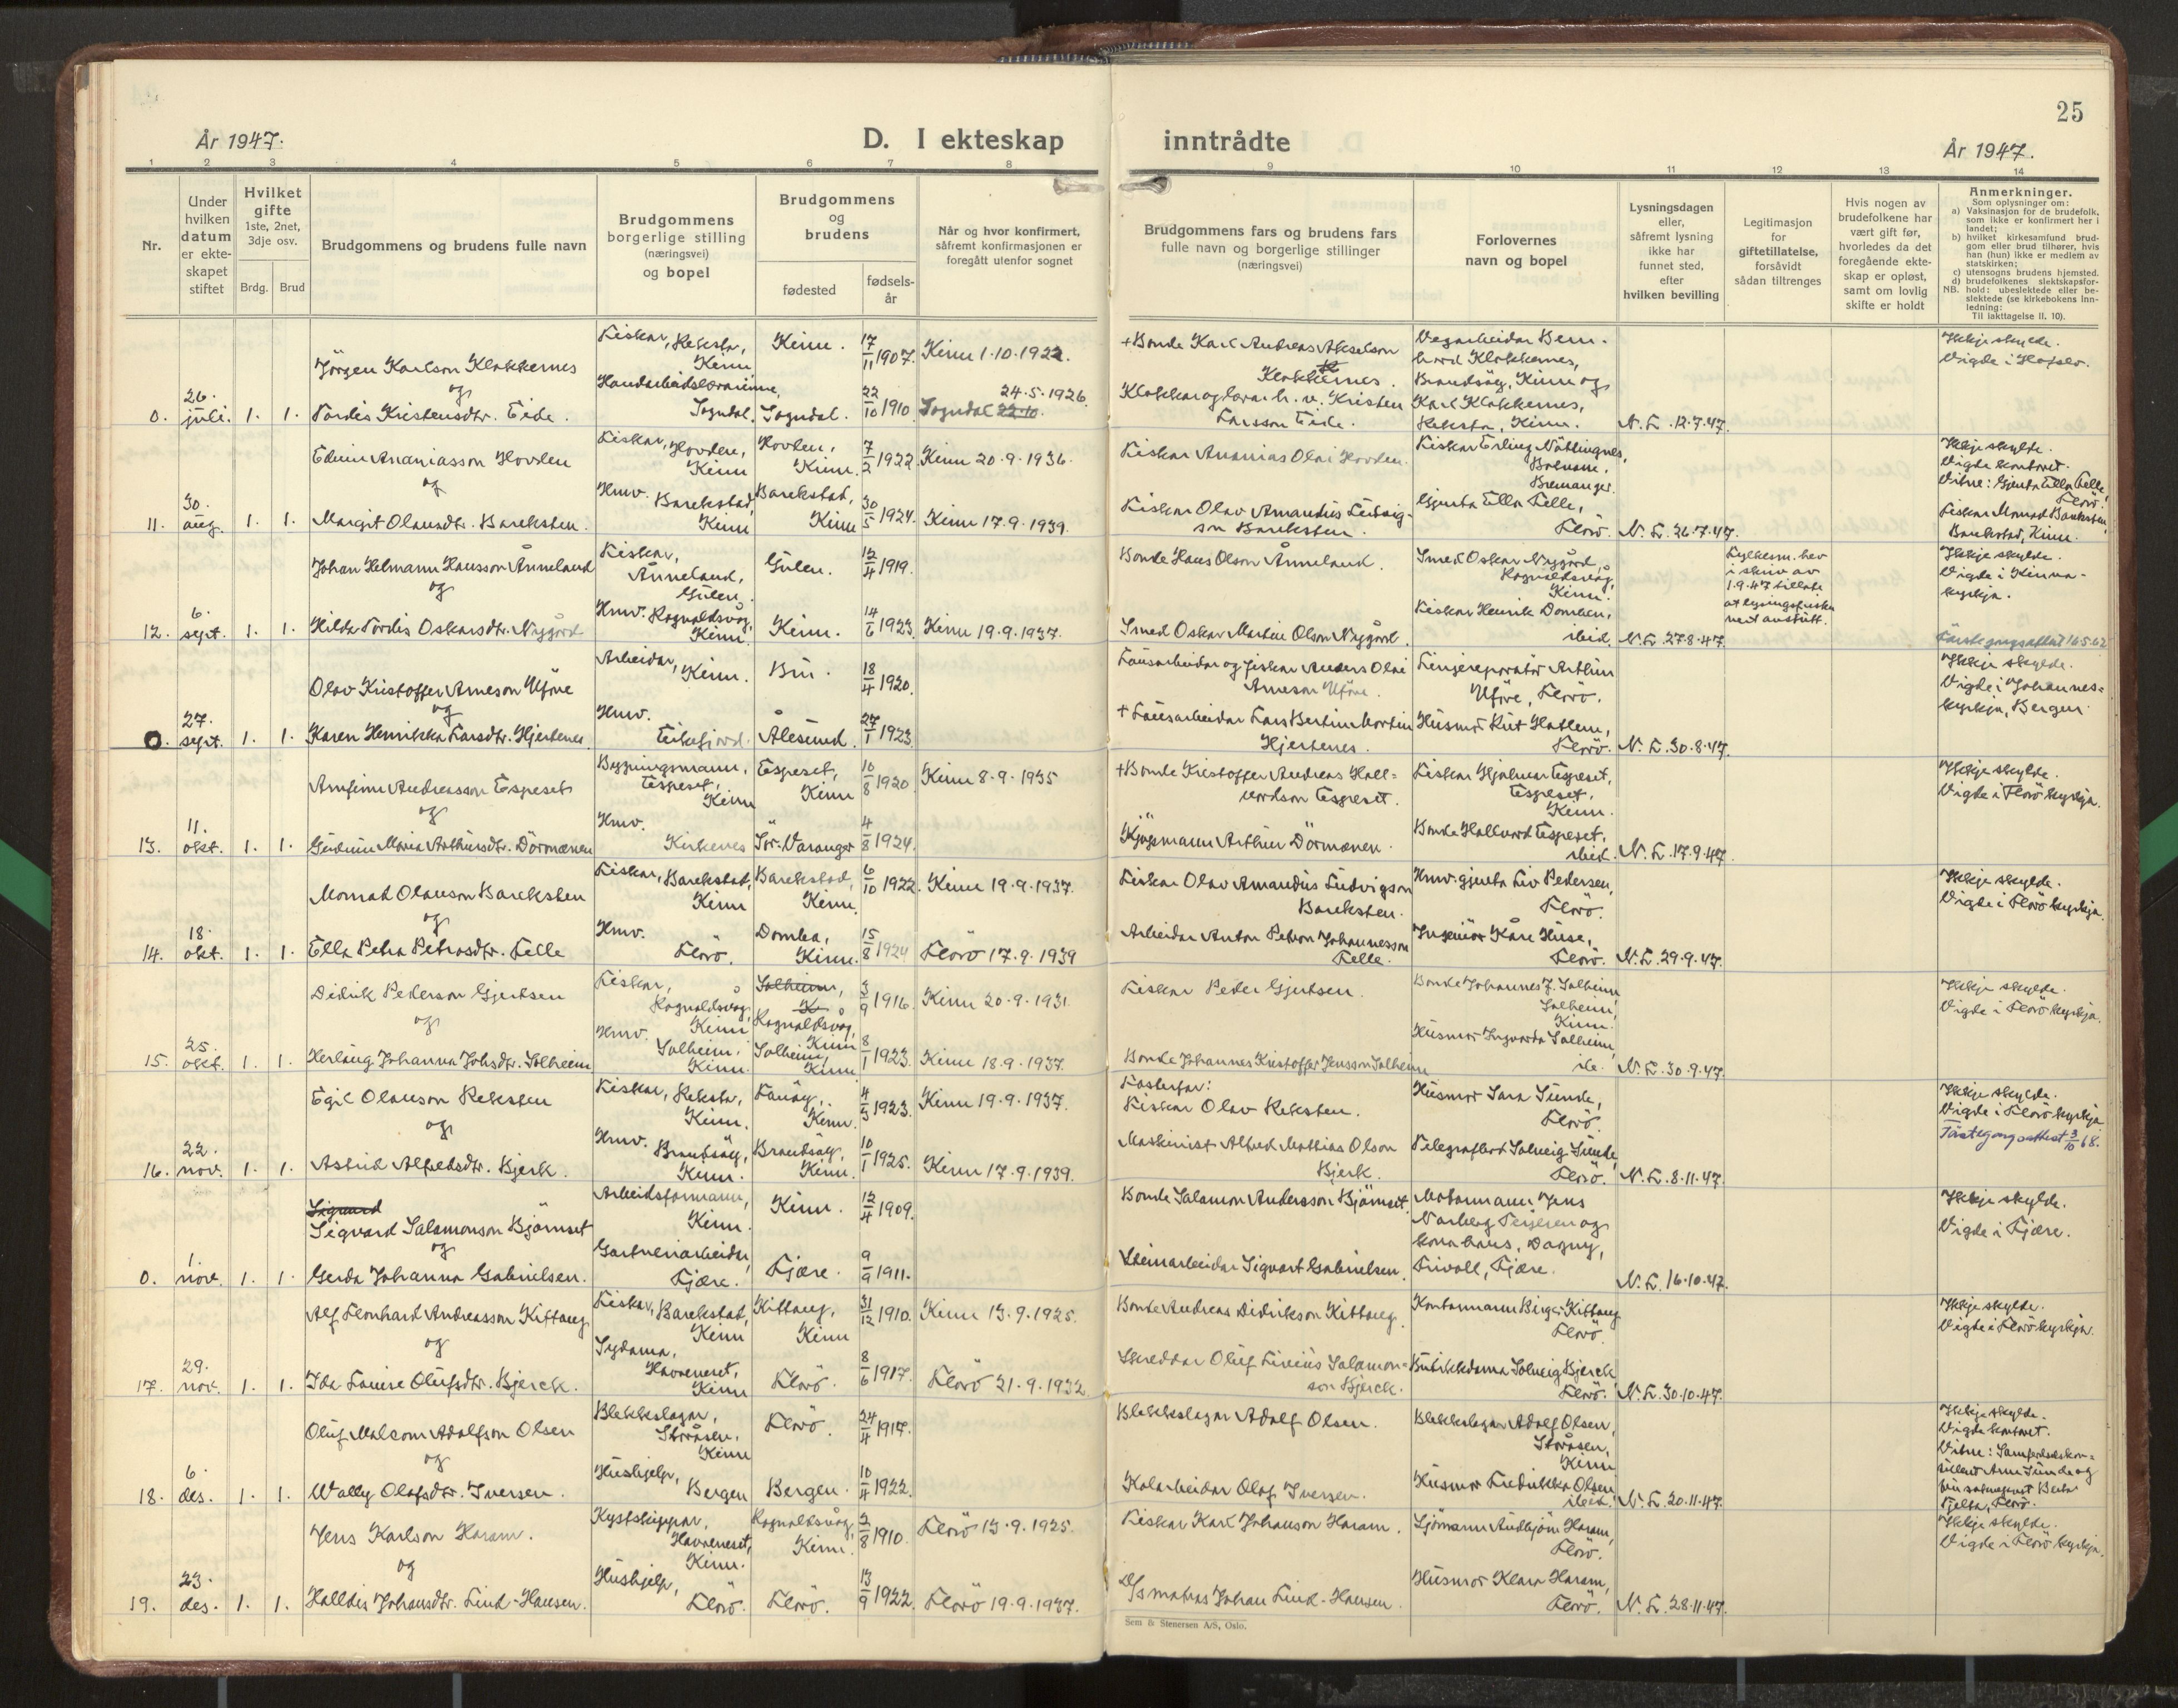 25
År 1947.
D. I ekteskap inntrådte
År 1947.
1 2 3 4 5 6 7 8 9 10 11 12 13 14
Nr.
Under hvilken datum er ekteskapet stiftet
Hvilket gifte 1ste, 2net, 3dje osv.
Brdg. Brud
Brudgommens og brudens fulle navn
Brudgommens borgerlige stilling (næringsvei) og bopel
Brudgommens og brudens
fødested
fødselsår
Når og hvor konfirmert, såfremt konfirmasjonen er foregått utenfor sognet
Brudgommens fars og brudens fars fulle navn og borgerlige stillinger (næringsvei)
Forlovernes navn og bopel
Lysningsdagen eller, såfremt lysning ikke har funnet sted, efter hvilken bevilling
Legitimasjon for giftetillatelse, forsåvidt sådan tiltrenges
Hvis nogen av brudefolkene har vært gift før, hvorledes da det foregående ekteskap er opløst, samt om lovlig skifte er holdt
Anmerkninger.
Som oplysninger om:
a) Vaksinasjon for de brudefolk, som ikke er konfirmert her i landet;
b) hvilket kirkesamfund brudgom eller brud tilhører, hvis han (hun) ikke er medlem av statskirken;
c) utensogns brudens hjemsted.
d) brudefolkenes slektskapsforhold: ubeslektede eller beslektede (se kirkebokens Innledning:
NB. Til iakttagelse II. 10).
0. 26. juli. 1. 1.
Jörgen Karlson Klokkernes
og
Tordis Kristensdtr. Eide.
Fiskar, Reksta, Kinn
Handarbeidslærarinne, Sogndal.
Kinn. 17/11 1907. Kinn 1.10.1922.
Sogndal. 22/10 1910 Sogndal 24.5.1926.
+ Bonde Karl Andreas Akselson Klokkernes.
Klokkar og lærar h. v. Kristen Larsson Eide.
Vegarbeidar Bernhard Klokkernes, Brandsöy, Kinn og
Karl Klokkernes, Reksta, Kinn.
N. L. 12.7.47.
Ikkje skylde.
Vigde i Hafslo.
11. 30. aug. 1. 1.
Edvin Ananiasson Hovden
og
Margit Olausdtr. Bareksten.
Fiskar, Hovden, Kinn
Hmv. Barekstad, Kinn
Hovden, Kinn. 7/2 1922. Kinn 20.9.1936.
Barekstad, Kinn 30/5 1924. Kinn 17.9.1939.
Fiskar Ananias Olai Hovden.
Fiskar Olav Amandus Ludvigson Bareksten.
Fiskar Erling Nöttingnes, Botnane, Bremanger.
Gjenta Ella Felle, Florö.
N. L. 26.7.47.
Ikkje skylde.
Vigde kontoret.
Vitne: Gjenta Ella Felle, Florö.
Fiskar Monrad Bareksten, Barekstad, Kinn.
12. 6. sept. 1. 1.
Johan Helmann Hansson Ånneland
og
Hilda Tordis Oskarsdtr. Nygård
Fiskar, Ånneland, Gulen.
Hmv. Rognaldsvåg, Kinn
Gulen. 12/4 1919.
Kinn. 14/6 1923. Kinn 19.9.1937.
Bonde Hans Olson Ånneland.
Smed Oskar Martin Olson Nygård.
Smed Oskar Nygård, Rognaldsvåg, Kinn.
Fiskar Henrik Domben, ibid.
N. L. 27.8.47.
Fylkesm. hev i skriv av 1.9.47 tillate at lysingsfristen vert avstutt.
Ikkje skylde.
Vigde i Kinnakyrkja.
0. 27. sept. 1. 1.
Olav Kristoffer Arneson Uföre
og
Karen Henrikka Larsdtr. Hjertenes.
Arbeidar, Kinn.
Hmv. Eikefjord.
Bru. 18/4 1920.
Ålesund. 27/1 1923.
Lausarbeidar og fiskar Anders Olai Arneson Uföre.
+ Lausarbeidar Lars Bertin Martin Hjertenes.
Linjereparatör Arthur Uföre, Florö.
Husmor Rut Hatlem, Florö.
N. L. 30.8.47.
Ikkje skylde.
Vigde i Johanneskyrkja, Bergen.
13. 11. okt. 1. 1.
Arnfinn Andreasson Espeset
og
Gudrun Maria Arthursdtr. Dörmænen
Bygningsmann, Espeset, Kinn
Hmv. Kirkenes
Espeset, Kinn 10/8 1920. Kinn 8.9.1935
Sör-Varanger 4/8 1924.
+ Bonde Kristoffer Andreas Hallvardson Espeset.
Kjögemann Arthur Dörmænen.
Fiskar Hjalmar Espeset, Espeset, Kinn.
Bonde Hallvard Espeset, ibid.
N. L. 17.9.47.
Ikkje skylde.
Vigde i Florö kyrkja.
14. 18. okt. 1. 1.
Monrad Olauson Bareksten
og
Ella Petra Petrasdtr. Felle
Fiskar, Barekstad, Kinn
Hmv. Florö.
Barekstad, Kinn. 6/10 1922. Kinn 19.9.1937.
Domba, Kinn. 15/8 1924 Florö 17.9.1939
Fiskar Olav Amandus Ludvigson Bareksten.
Arbeidar Anton Petron Johannesson Felle.
Hmv. gjenta Liv Pedersen, Florö.
Ingeniör Kåre Huse, Florö.
N. L. 29.9.47.
Ikkje skylde.
Vigde i Florö kyrkja.
15. 25. okt. 1. 1.
Didrik Pederson Gjertsen
og
Herlaug Johanna Johsdtr. Solheim
Fiskar, Rognaldsvåg, Kinn
Hmv. Solheim, Kinn.
Solheim, Rognaldsvåg, Kinn 3/9 1916. Kinn 20.9.1931.
Solheim, Kinn 8/1 1923. Kinn 18.9.1937.
Fiskar Peder Gjertsen.
Bonde Johannes Kristoffer Jensson Solheim
Bonde Johannes J. Solheim, Solheim, Kinn.
Husmor Ingvarda Solheim, ib.
N. L. 30.9.47.
Ikkje skylde.
Vigde i Florö kyrkja.
16. 22. nov. 1. 1.
Egil Olauson Reksten
og
Astrid Alfredsdtr. Bjerk.
Fiskar, Reksta, Kinn.
Hmv. Brandsöy, Kinn.
Fanöy, Kinn. 4/5 1923. Kinn 19.9.1937.
Brandsöy, Kinn. 10/1 1925. Kinn 17.9.1939.
Fosterfar:
Fiskar Olav Reksten.
Maskinist Alfred Mathias Olson Bjerk.
Husmor Sara Sunde, Florö.
Telegrafbud Solveig Sunde, Florö.
N. L. 8.11.47.
Ikkje skylde.
Vigde i Florö kyrkja.
0. 1. nov. 1. 1.
Sigvard
Sigvard Salomonson Björnset
og
Gerda Johanna Gabrielsen.
Arbeidsformann, Kinn.
Gartneriarbeidar, Fjære.
Kinn. 12/4 1909.
Fjære. 9/9 1911.
Bonde Salamon Andersson Björnset.
Steinarbeidar Sigvart Gabrielsen.
Motormann Jens Norberg Terjesen og kona hans, Dagny, Trivoll, Fjære.
N. L. 16.10.47
Ikkje skylde.
Vigde i Fjære.
17. 29. nov. 1. 1.
Alf Leonhard Andreasson Kittang
og
Ida Louise Olufsdtr. Bjerck.
Fiskar, Barekstad, Kinn
Sydama, Havreneset, Kinn
Kittang, Kinn 31/12 1910. Kinn 13.9.1925.
Florö. 8/6 1917. Florö 21.9.1932.
Bonde Andreas Didrikson Kittang.
Skreddar Oluf Livius Salamonson Bjerck.
Kontormann Birger Kittang Florö.
Butikkdama Solveig Bjerck, Florö.
N. L. 30.10.47.
Ikkje skylde.
Vigde i Florö kyrkja.
18. 6. des. 1. 1.
Oluf Malcom Adolfson Olsen
og
Wally Olafsdtr. Iversen.
Blekkslagar, Storåsen, Kinn
Hushjelp, Bergen
Florö. 24/4 1917.
Bergen. 10/4 1922.
Blekkslagar Adolf Olsen.
Kolarbeidar Olaf Iversen.
Blekkslagar Adolf Olsen, Storåsen, Kinn
Husmor Fredrikka Olsen ibid.
N. L. 20.11.47.
Ikkje skylde.
Vigde kontoret.
19. 23. des. 1. 1.
Jens Karlson Haram.
og
Halldis Johansdtr. Lind-Hansen.
Kystskippar, Havreneset, Kinn.
Hushjelp, Florö.
Rognaldsvåg, Kinn. 2/8 1910. Florö 13.9.1925.
Florö. 13/9 1922. Florö 19.9.1937.
Fiskar Karl Johanson Haram.
D/S matros Johan Lind-Hansen.
Sjömann Audbjörn Haram, Florö.
Husmor Klara Haram, Florö.
N. L. 28.11.47.
Ikkje skylde.
Vigde i Florö kyrkja.
Sem & Stenersen A/S, Oslo.